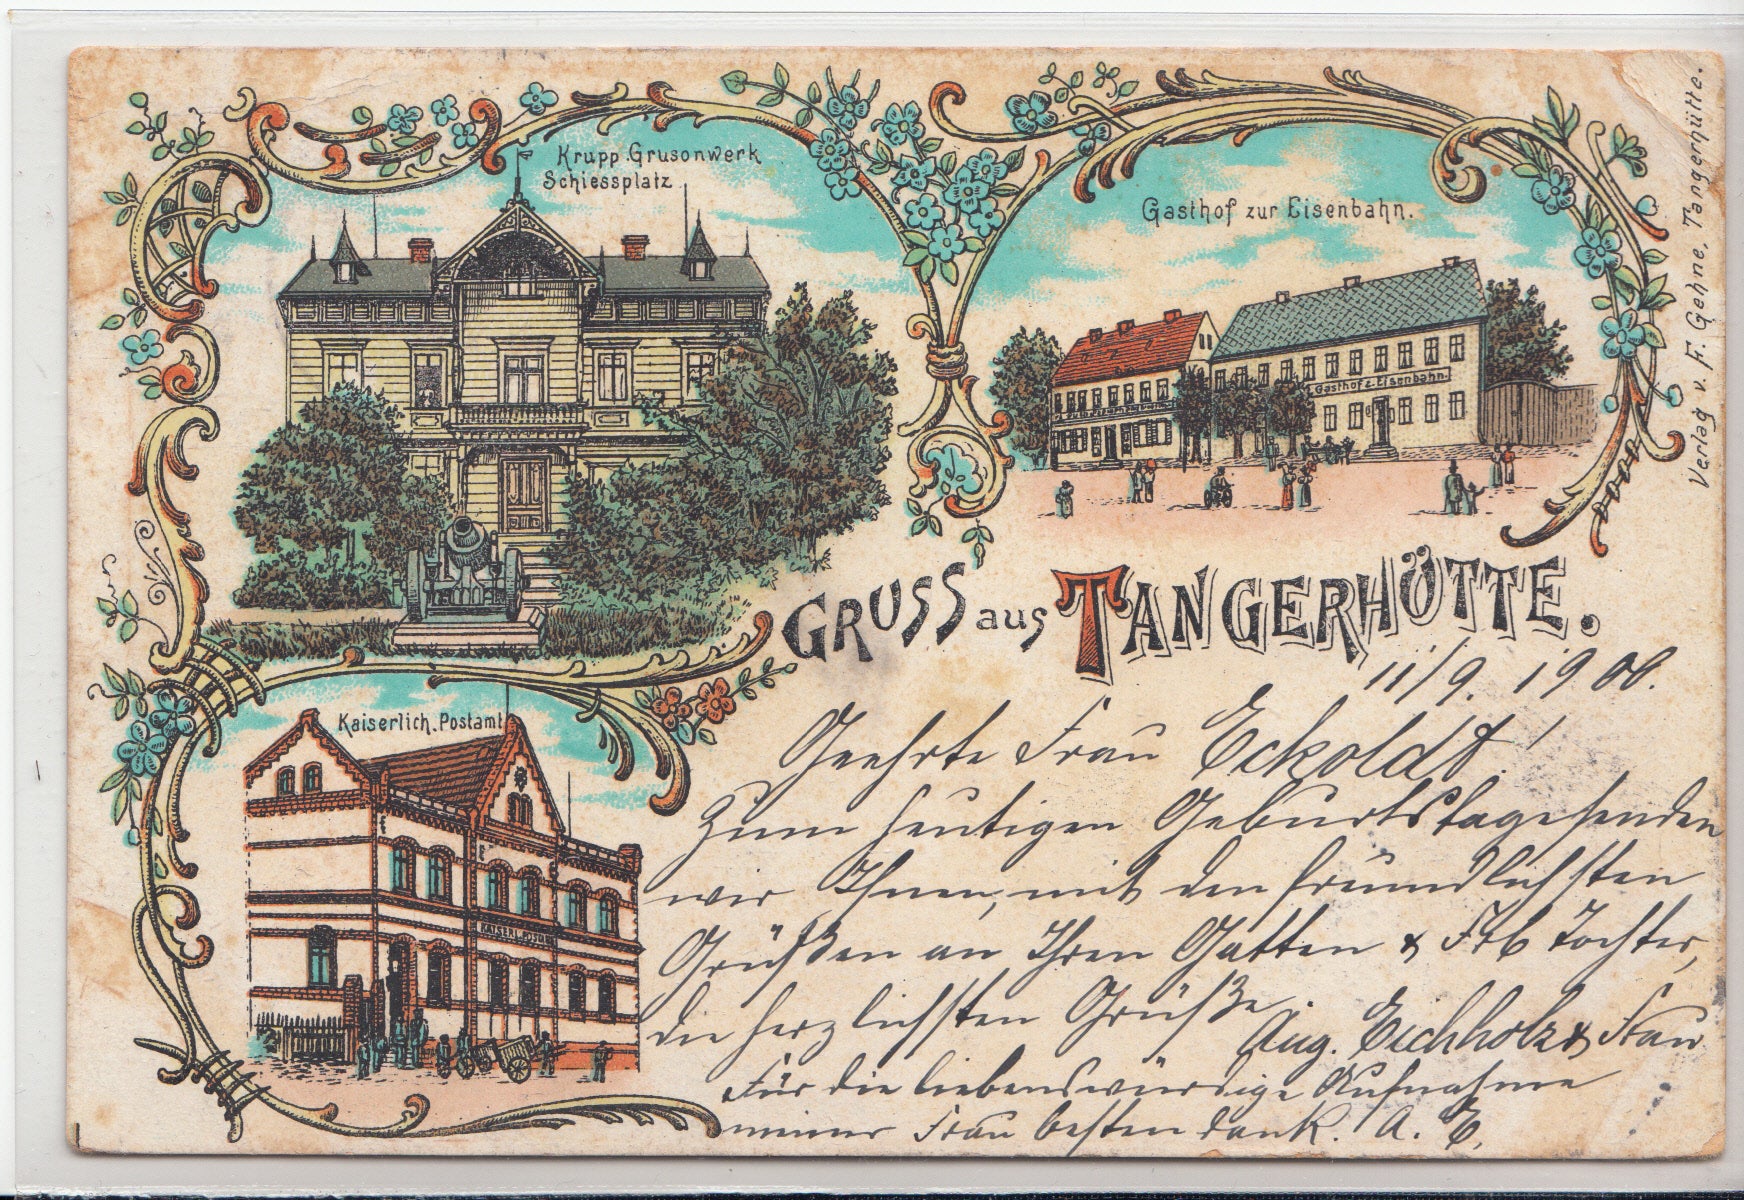 Krupp Grusonwerk
Schiessplatz
Gasthof zur Eisenbahn.
Gasthof z. Eisenbahn.
Verlag v. F. Gehne, Tangerhütte.
GRUSS aus TANGERHÜTTE.
Kaiserlich. Postamt
KAISERL. POSTAMT
11/9. 1900.
Geehrte Frau Eckoldt!
Zum heutigen Geburtstage senden
wir Ihnen, mit den freundlichsten
Grüßen an Ihren Gatten & Frl Tochter,
die herzlichsten Grüße.
Aug. Eichholz & Frau
Für die liebenswürdige Aufnahme
meiner Frau besten Dank. A. E.